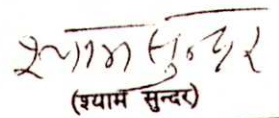 श्याम सुन्दर
(श्याम सुन्दर)